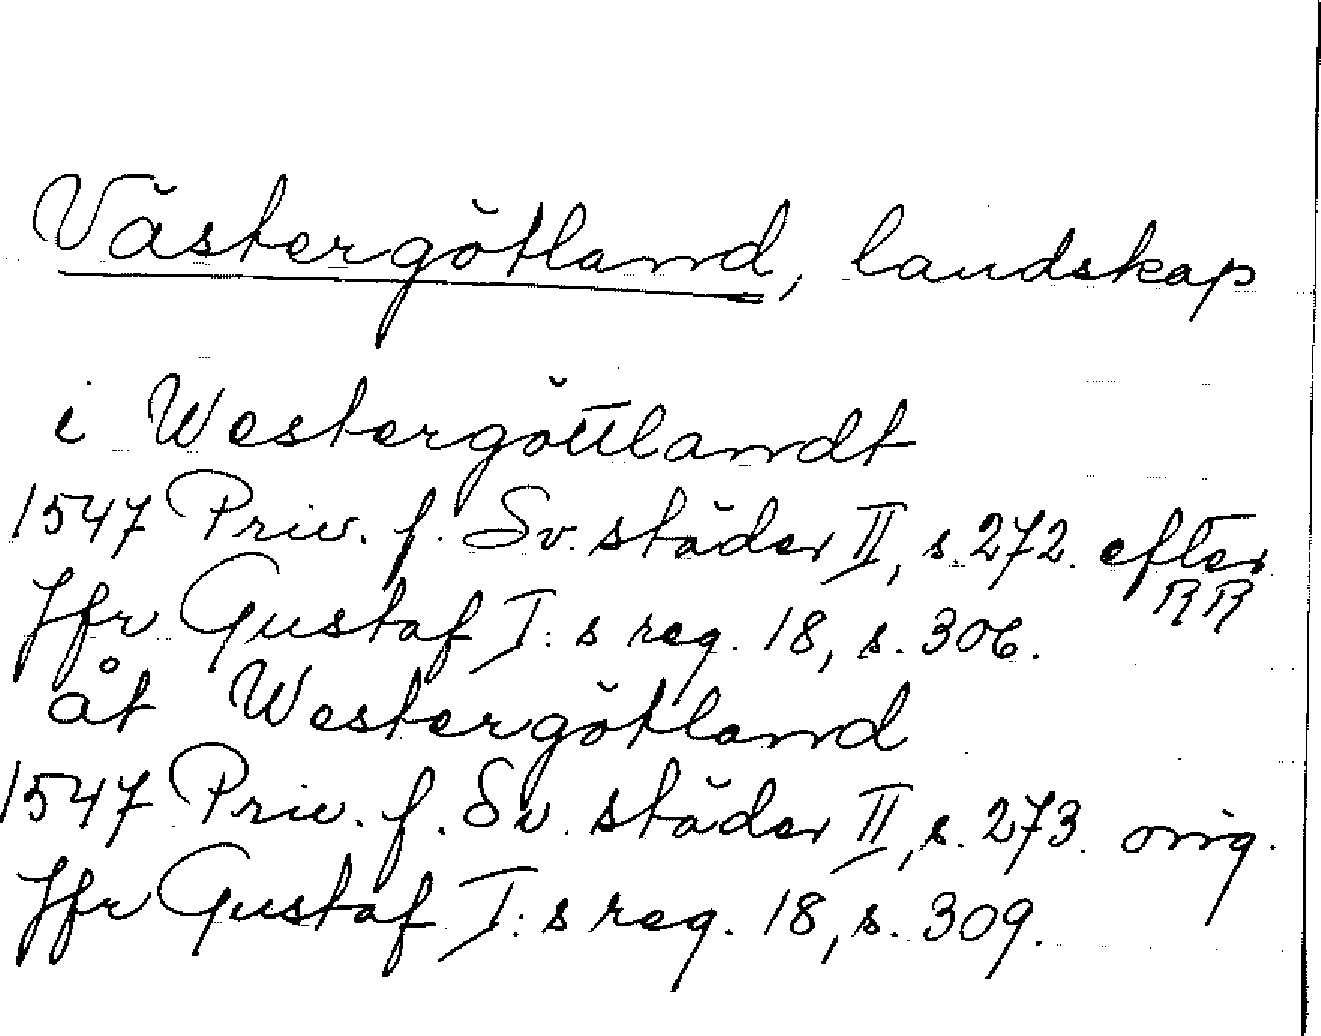 Västergötland, landskap
i Westergöttlandt
1547 Priv. f. Sv. städer II, s. 272. efter RR
Jfr Gustaf I:s reg. 18, s. 306.
åt Westergötland
1547 Priv. f. Sv. städer II, s. 273. orig.
Jfr Gustaf I:s reg. 18, s. 309.